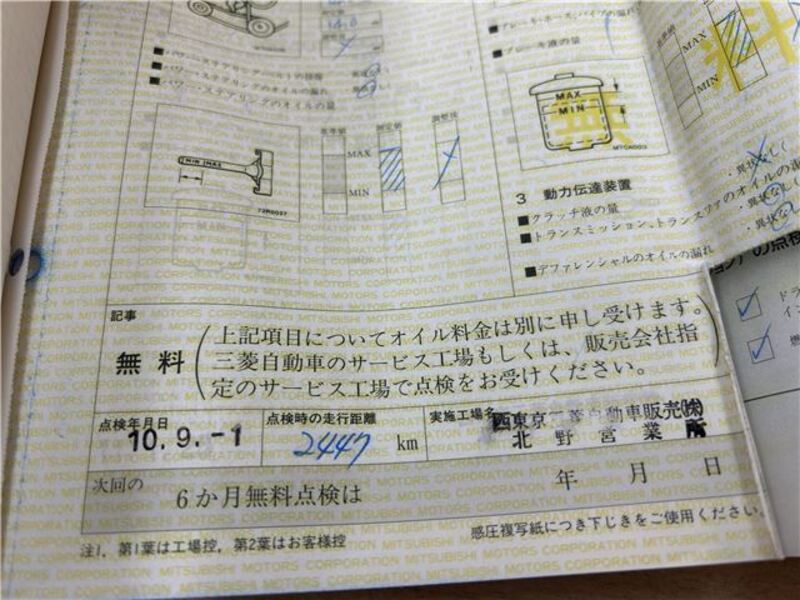 ■パワー・ステアリングのオイルの漏れ
■パワー・ステアリングのオイルの量
MIN MAX
基準値
測定値
調整後
MAX
MIN
■ブレーキ・ホース、パイプの漏れ
■ブレーキ液の量
MAX
MIN
無
料
MAX
MIN
3 動力伝達装置
■クラッチ液の量
■トランスミッション、トランスファのオイルの
■デファレンシャルのオイルの漏れ
・異状なし
・異状な
・異状
の点検
記事
無料
上記項目についてオイル料金は別に申し受けます。
三菱自動車のサービス工場もしくは、販売会社指
定のサービス工場で点検をお受けください。
点検年月日
10.9.-1
点検時の走行距離
2447 km
実施工場名
西東京三菱自動車販売㈱
北野営業所
次回の
6か月無料点検は
年 月 日
注1. 第1葉は工場控, 第2葉はお客様控
感圧複写紙につき下じきをご使用ください。
MITSUBISHI MOTORS CORPORATION